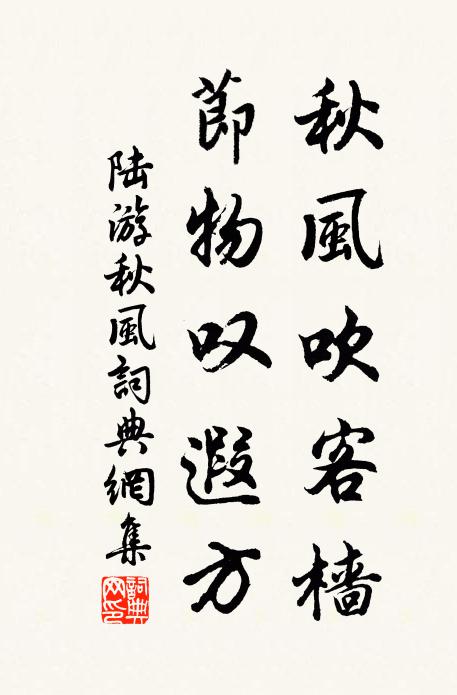 秋風吹客檣
節物叹遐方
陆游秋風詞典網集
詞典网印